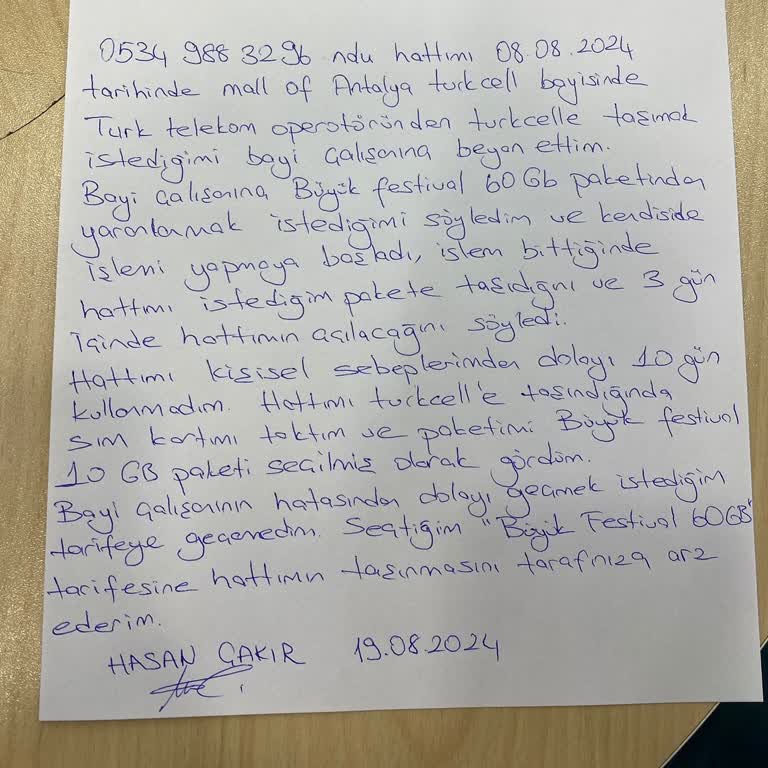 0534 988 3296 ndu hattımı 08.08.2024
tarihinde mall of Antalya turkcell bayisinde
Türk telekom operatöründen turkcelle taşımak
istediğimi bayi çalışanına beyan ettim.
Bayi çalışanına Büyük festival 60 Gb paketinden
yararlanmak istediğimi söyledim ve kendiside
işlemi yapmaya başladı, işlem bittiğinde
hattımı istediğim pakete taşıdığını ve 3 gün
içinde hattımın açılacağını söyledi.
Hattımı kişisel sebeplerimden dolayı 10 gün
kullanmadım. Hattımı turkcell'e taşındığında
sim kartımı taktım ve paketimi Büyük festival
10 GB paketi seçilmiş olarak gördüm.
Bayi çalışanının hatasından dolayı geçmek istediğim
tarifeye geçemedim. Seçtiğim "Büyük Festival 60GB"
tarifesine hattımın taşınmasını tarafınıza arz
ederim.
HASAN ÇAKIR 19.08.2024